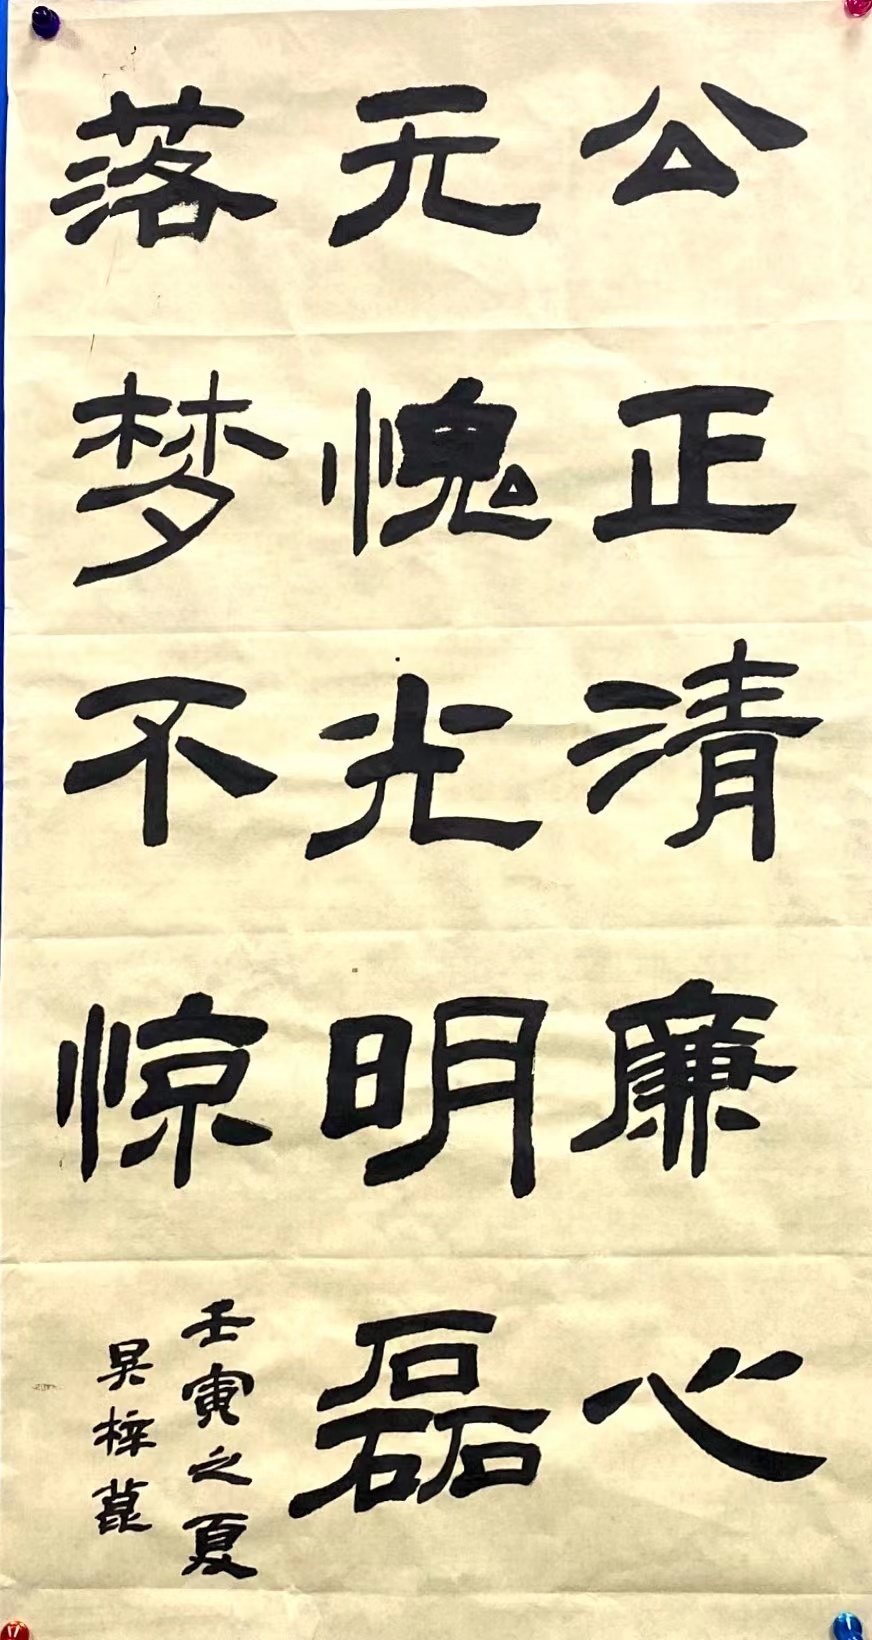 公正清廉心
无愧光明磊
落梦不惊
壬寅之夏
吴梓菎